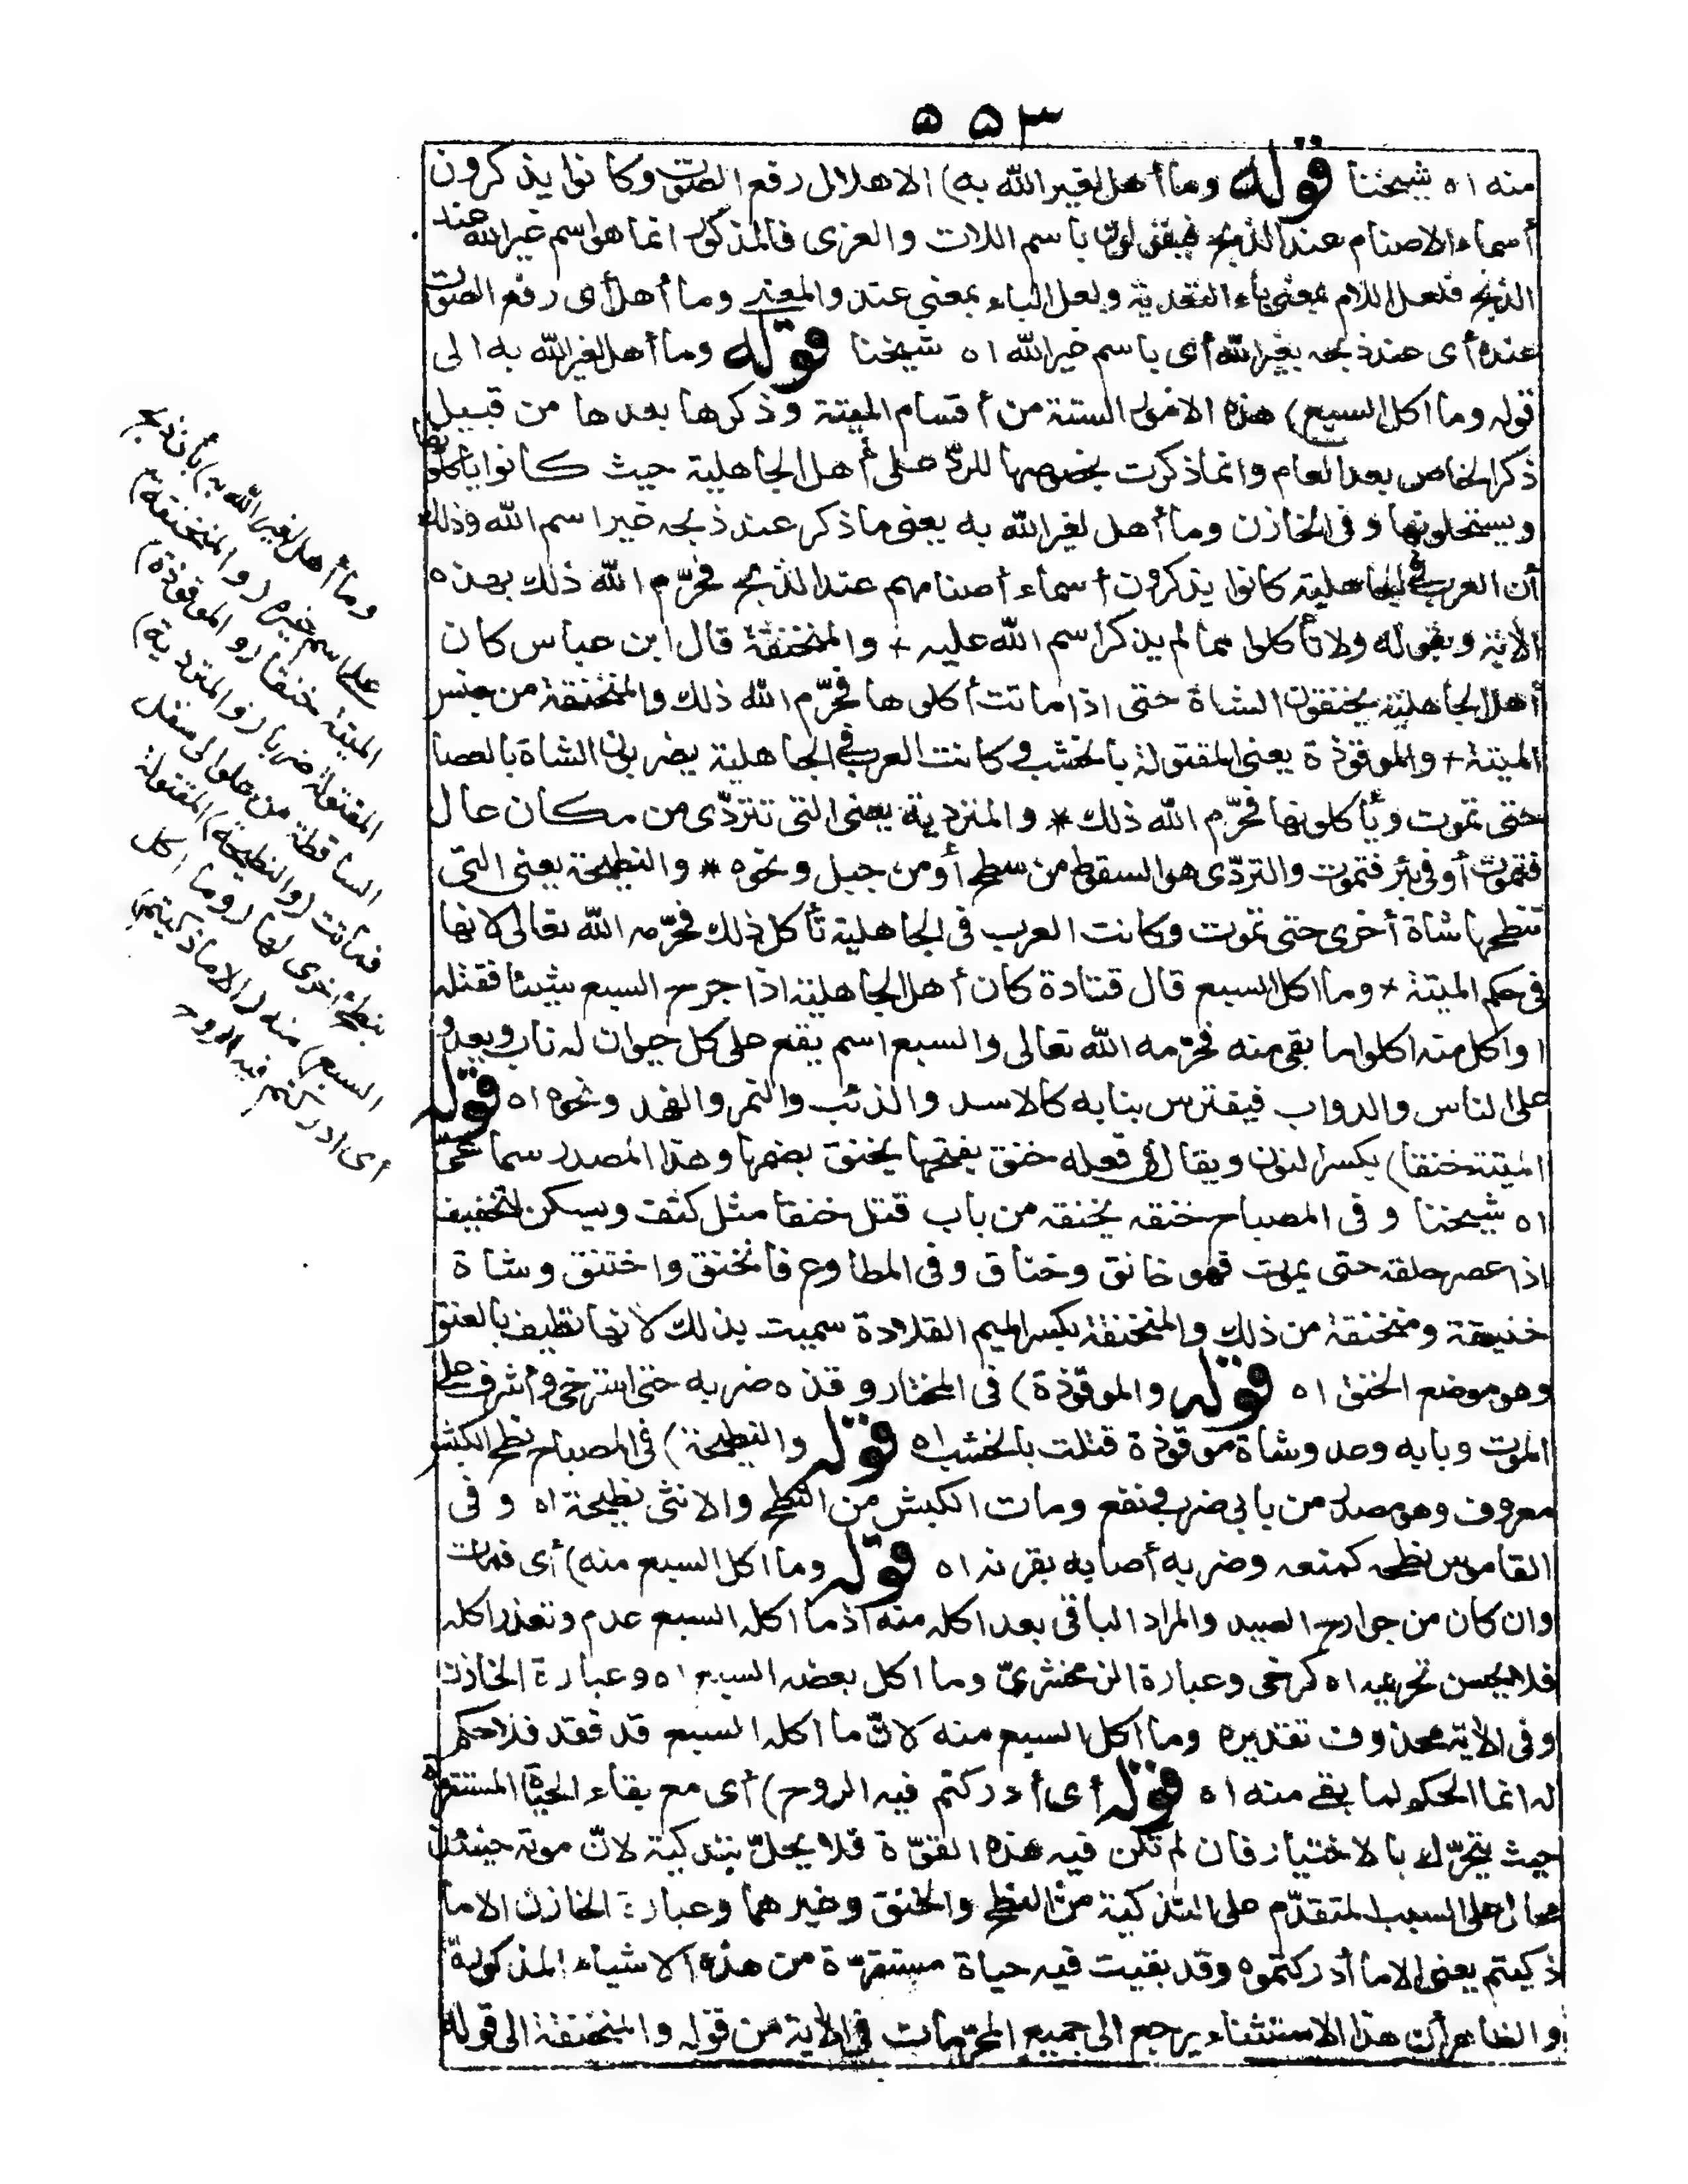 ٥٥٣
منه اه شيخنا قوله وما أهل لغير الله به) الاهلال رفع الصوت وكانوا يذكرون
أسماء الاصنام عند الذبح فيقولون باسم اللات والعزى فالمذكور انما هو اسم غير الله عند
الذبح فلعل اللام بمعنى باء التعدية ولعل الباء بمعنى عند والمعنى وما أهل أى رفع الصوت
عنده أى عند ذبحه بغير الله أى باسم غير الله اه شيخنا قوله وما أهل لغير الله به الى
قوله وما اكل السبع) هذه الامور الستة من أقسام الميتة وذكرها بعدها من قبيل
ذكر الخاص بعد العام وانما ذكرت بخصوصها للردّ على أهل الجاهلية حيث كانوا يأكلونها
ويستحلونها وفى الخازن وما أهل لغير الله به يعنى ما ذكر عند ذبحه غير اسم الله وذلك
أن العرب فى الجاهلية كانوا يذكرون أسماء أصنامهم عند الذبح فحرّم الله ذلك بهذه
الآية وبقوله ولا تأكلوا مما لم يذكر اسم الله عليه + والمنخنقة قال ابن عباس كان
أهل الجاهلية يخنقون الشاة حتى اذا ماتت أكلوها فحرّم الله ذلك والمنخنقة من جنس
الميتة + والموقوذة يعنى المقتولة بالخشب وكانت العرب فى الجاهلية يضربون الشاة بالعصا
حتى تموت ويأكلونها فحرّم الله ذلك * والمتردية يعنى التى تتردّى من مكان عال
فتموت أو فى بئر فتموت والتردّى هو السقوط من سطح أو من جبل ونحوه * والنطيحة يعنى التى
تنطحها شاة أخرى حتى تموت وكانت العرب فى الجاهلية تأكل ذلك فحرّمه الله تعالى لانها
فى حكم الميتة * وما اكل السبع قال قتادة كان أهل الجاهلية اذا جرح السبع شيئا فقتله
او اكل منه اكلوا ما بقى منه فحرّمه الله تعالى والسبع اسم يقع على كل حيوان له ناب ويعدو
على الناس والدواب فيفترس بنابه كالاسد والذئب والنمر والفهد ونحوه اه قوله
الميتة خنقا) بكسر النون ويقال فى فعله خنق بفتحها يخنق بضمها وهذا المصدر سماعىّ
اه شيخنا وفى المصباح خنقه يخنقه من باب قتل خنقا مثل كتف ويسكن لتخفيف
اذا عصر حلقه حتى يموت فهو خانق وخناق وفى المطاوع فانخنق واختنق وشاة
خنيقة ومنخنقة من ذلك والمنخنقة بكسر الميم القلادة سميت بذلك لانها تطيف بالعنق
وهو موضع الخنق اه قوله والموقوذة) فى المختار وقذه ضربه حتى استرخى وأشرف على
الموت وبابه وعد وشاة موقوذة قتلت بالخشب اه قوله والنطيحة) فى المصباح نطح الكبش
معروف وهو مصدر من بابى ضرب ونفع ومات الكبش من النطح والانثى نطيحة اه وفى
القاموس نطحه كمنعه وضربه أصابه بقرنه اه قوله وما اكل السبع منه) أى فمات
وان كان من جوارح الصيد والمراد الباقى بعد اكله منه اذ ما اكله السبع عدم وتعذر اكله
فلا يحسن تحريمه اه كرخى وعبارة الزمخشرىّ وما اكل بعضه السبع اه وعبارة الخازن
وفى الآية محذوف تقديره وما اكل السبع منه لانّ ما اكله السبع قد فقد فلا حكم
له انما الحكم لما بقى منه اه قوله أى أدركتم فيه الروح) أى مع بقاء الحياة المستقرة
حيث يتحرّك بالاختيار فان لم تكن فيه هذه القوّة فلا يحلّ بتذكية لانّ موته حينئذ
محال على السبب المتقدّم على التذكية من النطح والخنق وغيرهما وعبارة الخازن الا ما
ذكيتم يعنى الا ما أدركتموه وقد بقيت فيه حياة مستقرّة من هذه الاشياء المذكورة
والظاهر أن هذا الاستثناء يرجع الى جميع المحرّمات فى الآية من قوله والمنخنقة الى قوله
وما أهل لغير الله به) بأن ذبح
على اسم غيره (والمنخنقة)
الميتة خنقا (والموقوذة)
المقتولة ضربا (والمتردية)
الساقطة من علو الى سفل
فماتت (والنطيحة) المقتولة
بنطح أخرى لها (وما اكل
السبع) منه (الا ما ذكيتم)
أى ادركتم فيه الروح